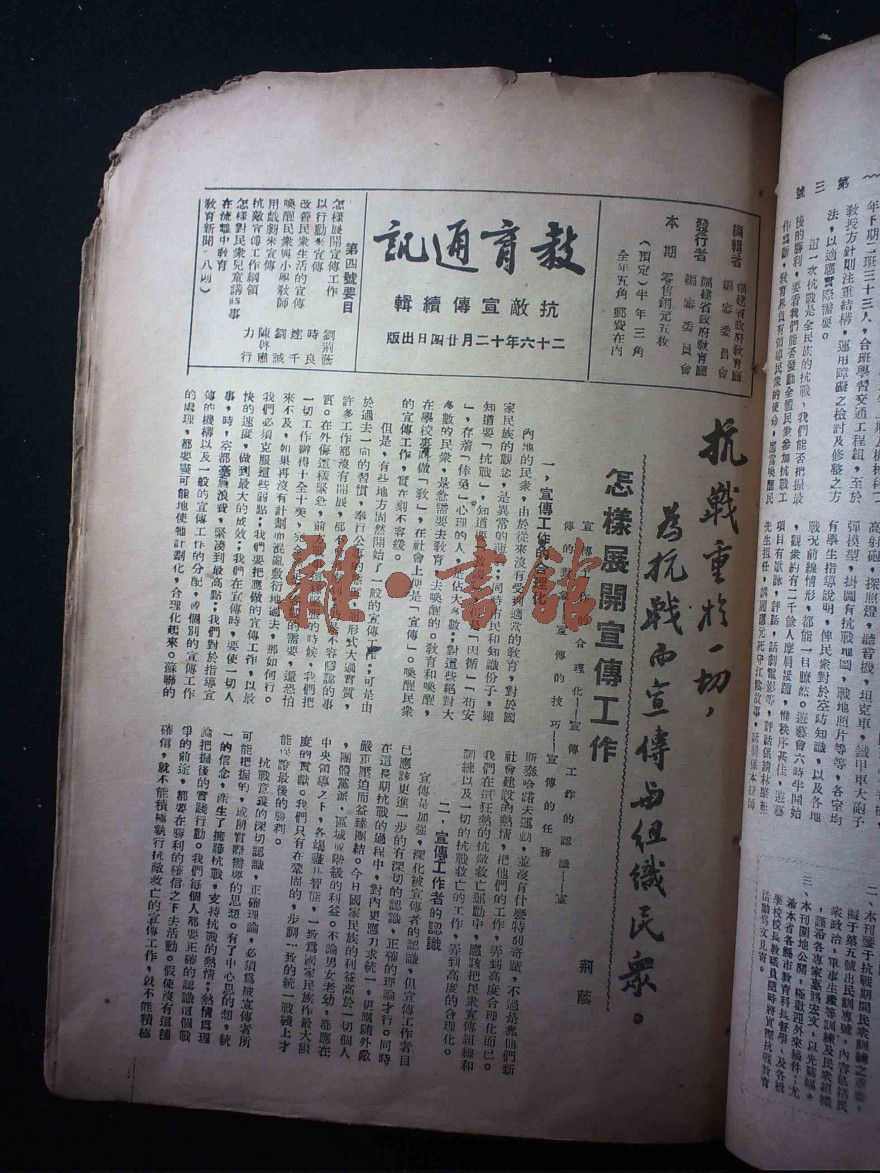 編輯者 福建省政府教育廳編審委員會
發行者 福建省政府教育廳編審委員會
本期 零售銅元五枚
(預定)半年三角
全年五角 郵費在內
教育通訊
抗敵宣傳續輯
二十六年十二月廿四日出版
第四號要目
怎樣展開宣傳工作 劉荊蔭
以行動來宣傳 時良
改善民衆生活的宣傳
喚醒民衆與小學教師
用戲劇來宣傳
抗敵宣傳工作綱領
怎樣對民衆兒童講時事
在流離中教育 力行
教育新聞(八則)
抗戰重於一切,
為抗戰而宣傳与組織民衆。
怎樣展開宣傳工作
荊蔭
宣傳工作的合理化——宣傳工作的認識——宣
傳的對象——宣傳的技巧——宣傳的任務
一,宣傳工作的合理化
內地的民衆,由於從來沒有受到適當的教育,對於國
家民族的觀念,是異常的薄弱;同時市民和知識份子,雖
知道要「抗戰」,知道要
」,存着「倖免」心理的人,是佔大多數;對這些絕對大
多數的民衆,是急需要去教育,去喚醒的。教育和喚醒,
在學校裏叫做「教」,在社會上便是「宣傳」。喚醒民衆
的宣傳工作,實在刻不容緩。
但是,有些地方固然開始了一般的宣傳工作;可是由
於過去一向的習慣,奉行公事的
許多工作都沒有開展,都
實。在外侮這樣緊急,前
一切工作辦得十全十美,
來不及,如果再沒有計劃而混亂敷衍地過去,那如何行。
我們必須克服這些弱點;我們要把應做的宣傳工作,以最
快的速度,做到最大的成效;我們在宣傳時,要使一切人
事,時,亭都毫無浪費,緊湊到最高點;我們對於指導宣
傳的機構以及一般的宣傳工作的分配,或個別的宣傳工作
的處理,都要盡可能地使牠計劃化,合理化起來。蘇聯的
斯泰哈諾夫運動,並沒有什麼特別奇蹟,不過是憑他們新
社會建設的熱情,把他們的工作,弄到高度合理化而已。
我們在正狂熱的抗敵救亡運動中,應該把民衆宣傳組織和
訓練以及一切的抗戰救亡的工作,弄到高度的合理化。
二,宣傳工作者的認識
宣傳是加強,深化被宣傳者的認識,但宣傳工作者自
已應該更進一步的有深切的認識,正確的理論才行。同時
在這長期抗戰的過程中,對內更應力求統一,更應隨外敵
嚴重壓迫而益臻團結。今日國家民族的利益高於一切個人
,團體黨派,區域或階級的利益。不論男女老幼,都應在
中央領導之下,各竭盡其智能,一致為國家民族作最大限
度的貢獻。我們只有在鞏固的,步調一致的統一戰綫上才
能保證最後的勝利。
抗戰意義的深切認識,正確理論,必須為每宣傳者所
可能把握的,或所實際需要的思想。有了中心思的想,統
一的信念,產生了擁護抗戰,支持抗戰的熱情;熱情為理
論把握後的實踐行動。我們每個人都要正確的認識這個戰
爭的前途,都要在勝利的確信之下去活動。假使沒有這種
確信,就不能積極執行抗敵救亡的宣傳工作,就不能積極
第三號
年下期二班三十三人,合班學習交通工程組,至於
教授方針則注重結構,運用障礙之檢討及修整之方
法,以適應實際需要。
這一次抗戰是全民族的抗戰,我們能否把握最
後的勝利,要看我們能否發動全體民衆參加抗戰工
作為斷,教育界負有領導民衆的使命,
高射砲,探照燈,聽音機,坦克車,鐵甲車大砲子
彈模型,掛圖有抗戰地圖,戰地照片等等,各室均
有學生指導說明,俾民衆對於空防知識,以及各地
戰況前線情形,都能一目瞭然。遊藝會六時半開始
,觀衆約有二千餘人摩肩接踵,惟秩序甚佳,遊藝
項目有歌詠,評話,話劇電影等,
二、本刊鑒于抗戰期間民衆訓練之重要,
擬于第五號出民訓專號,內容包括民
衆政治,軍事生產等訓練及民衆組織
,謹希各專家惠賜宏文,以光篇幅。
三、本刊園地公開,極歡迎外來稿件;尤
希本省各縣市教育科長督學,及各級
學校校長教職員隨時將實際抗戰教育
活動為文見寄。
雅·書館